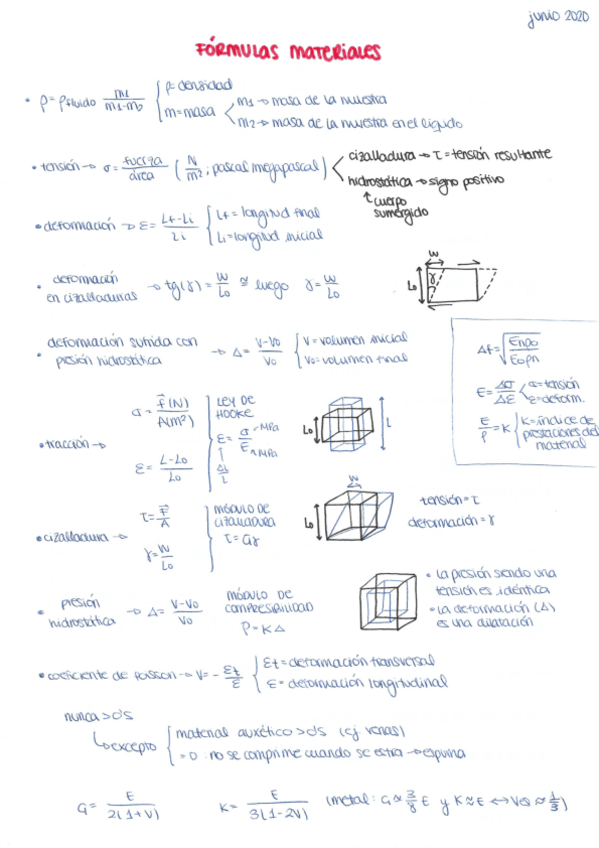 junio 2020
FÓRMULAS MATERIALES
• ρ = ρfluido m1/(m1-m2) { ρ = densidad
m = masa < m1 → masa de la muestra
m2 → masa de la muestra en el líquido
• tensión → σ = fuerza/área (N/m2; pascal/megapascal) < cizalladura → τ = tensión resultante
hidrostática → signo positivo
↑ cuerpo
sumergido
• deformación → ε = (Lf-Li)/Li { Lf = longitud final
Li = longitud inicial
• deformación
en cizalladuras → tg(γ) = W/Lo ≅ luego γ = W/Lo
W
γ
Lo
• deformación sufrida con
presión hidrostática → Δ = (V-Vo)/Vo { V = volumen inicial
Vo = volumen final
Δf = √(Enρo/Eoρn)
E = Δσ/Δε < σ = tensión
ε = deform.
E/ρ = K { K = índice de
prestaciones del
material
• tracción →
σ = F(N)/A(m²)
ε = (L-Lo)/Lo
LEY DE
HOOKE
ε = σ/E
MPa
MPa
ΔL/L
Lo
L
• cizalladura →
τ = F/A
γ = W/Lo
MÓDULO DE
CIZALLADURA
τ = Gγ
W
Lo
tensión = τ
deformación = γ
• presión
hidrostática → Δ = (V-Vo)/Vo
MÓDULO DE
COMPRESIBILIDAD
P = KΔ
• La presión siendo una
tensión es idéntica
• La deformación (Δ)
es una dilatación
• coeficiente de Poisson → V = - εt/ε { εt = deformación transversal
ε = deformación longitudinal
nunca > 0's
↳ excepto { material auxético > 0's (ej venas)
= 0 : no se comprime cuando se estira → espuma
G = E/(2(1+V))
K = E/(3(1-2V))
(metal: G ≈ 3/8 E y K ≈ E ↔ V ≈ 1/3)